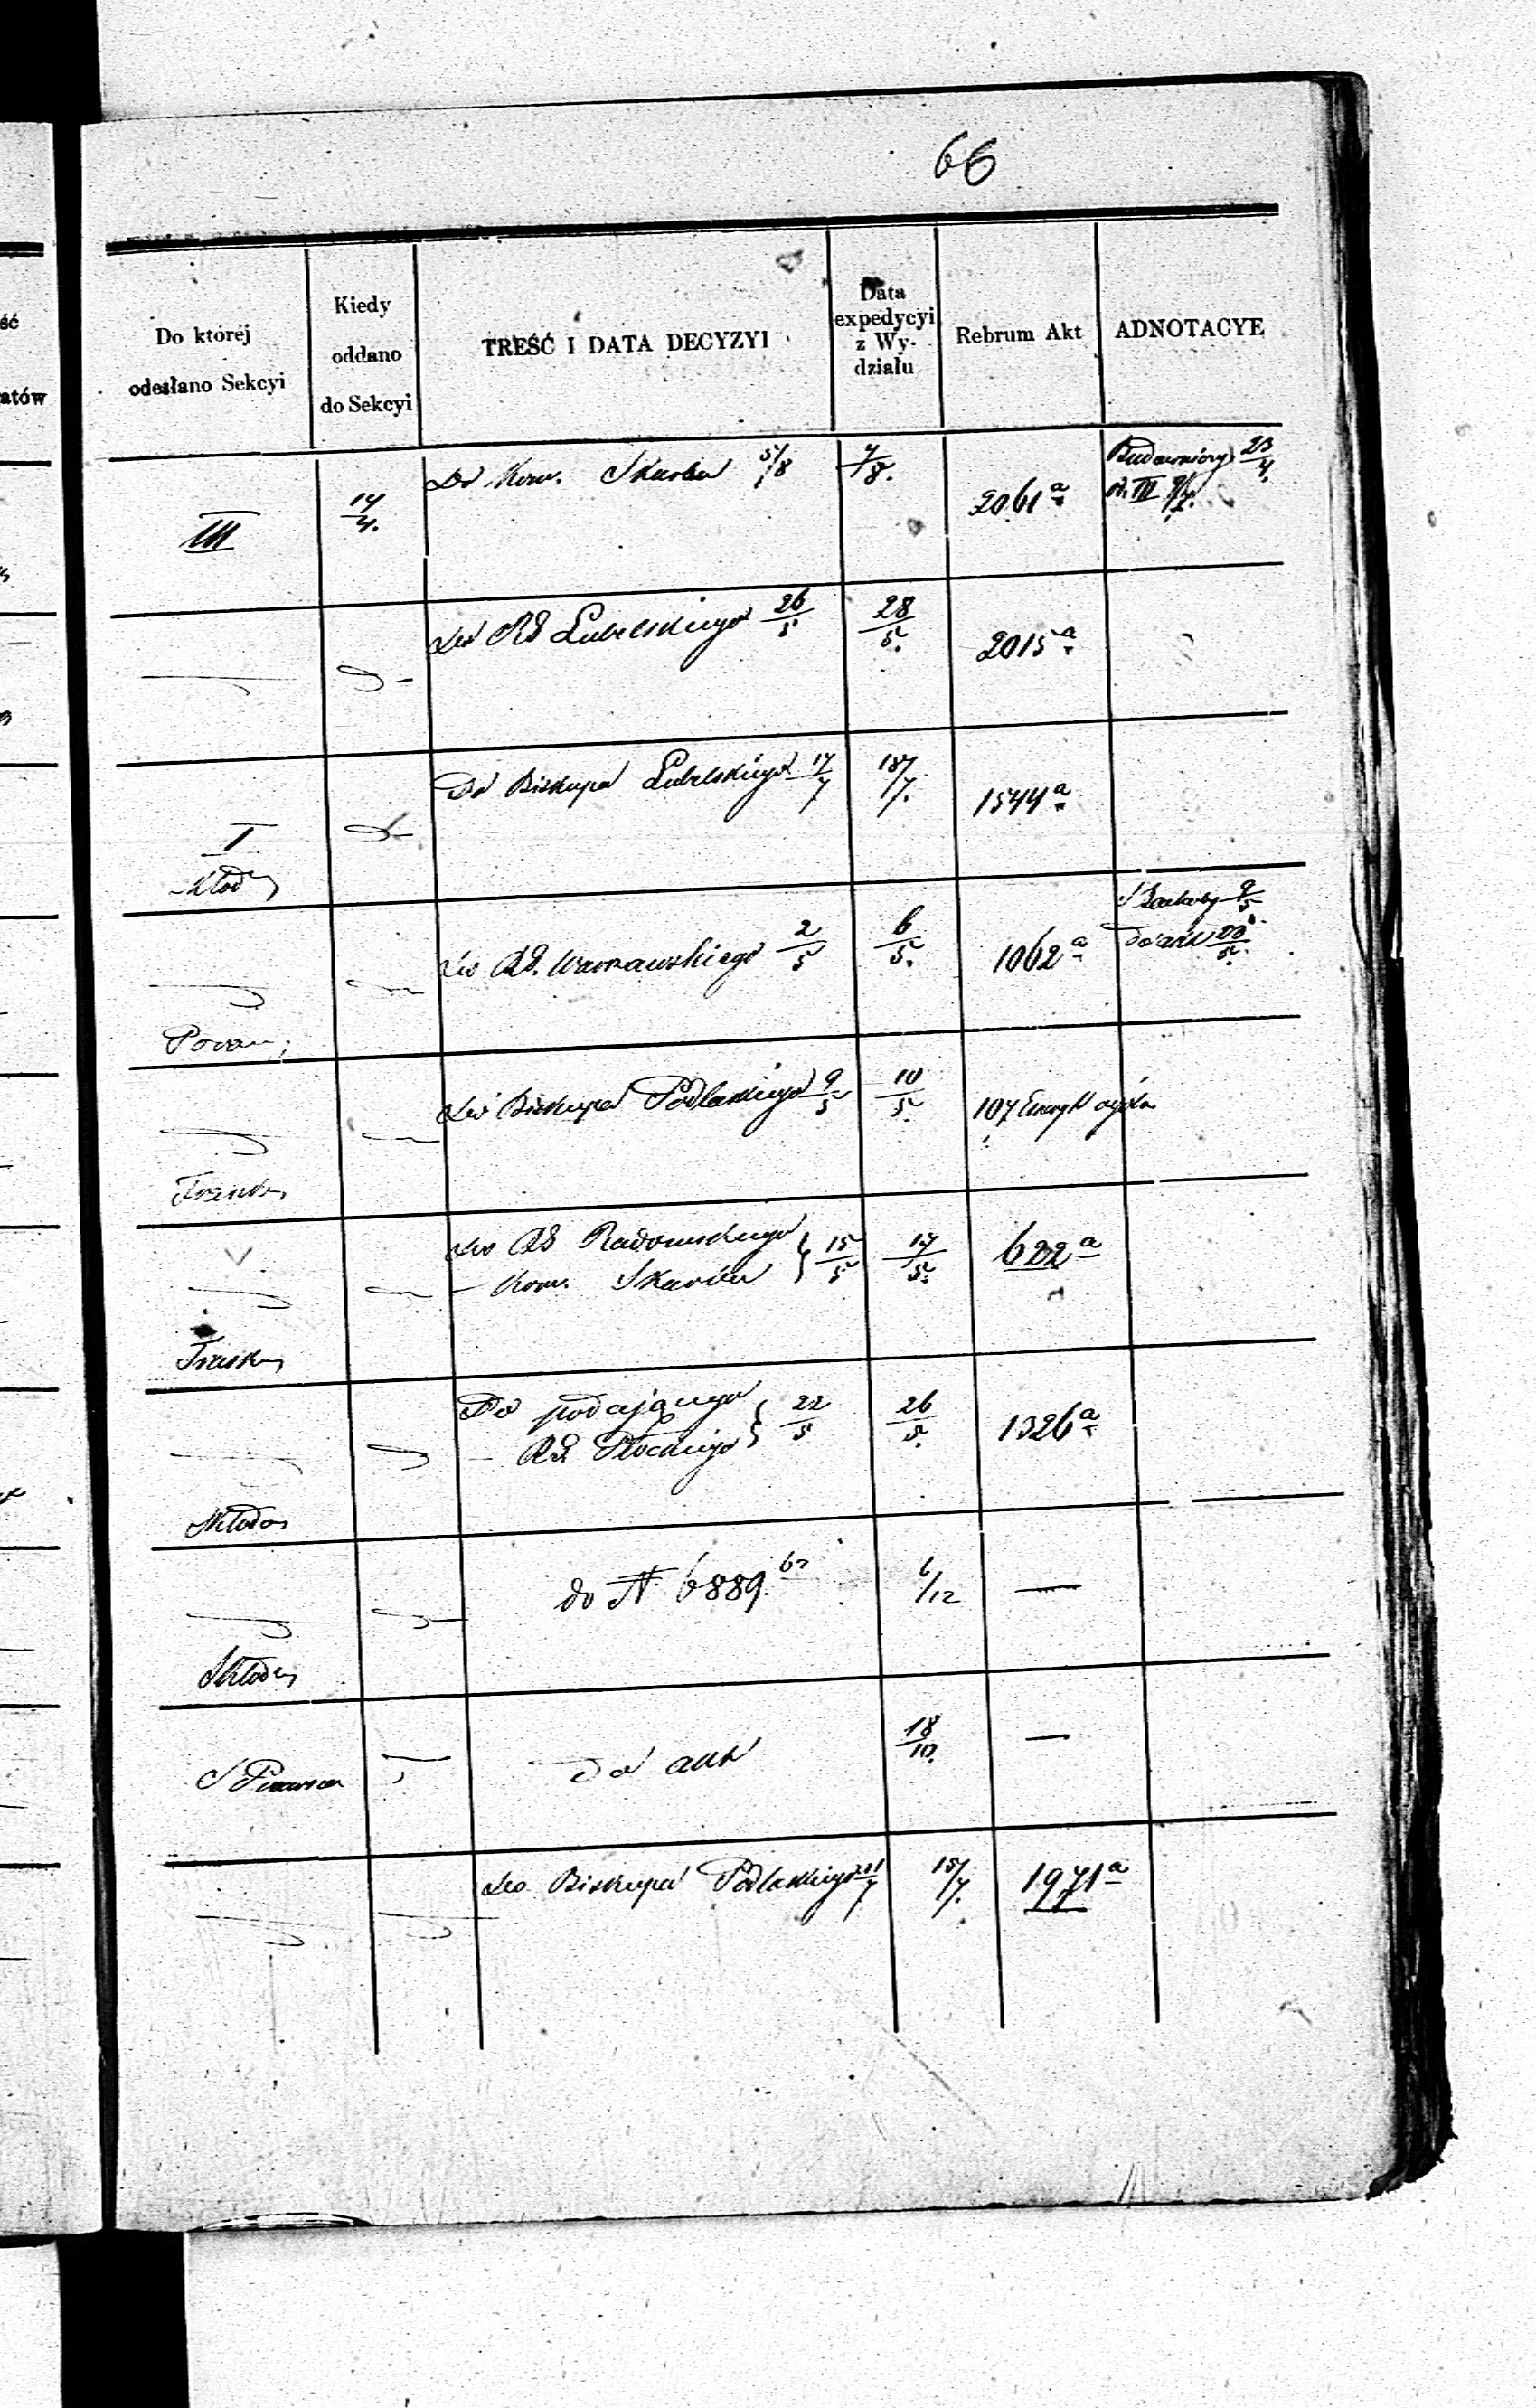 66
Do któréj
odesłano Sekcyi
Kiedy
oddano
do Sekcyi
TREŚĆ I DATA DECYZYI
Data
expedycyi
z Wy-
działu
Rebrum Akt
ADNOTACYE
ść
atów
III
14/4.
Do Kom. Skarbu 5/8
7/8.
2061 a
Budowniczy 23/4.
Do RG Lubelskiego 26/5
28/5.
2015 a
I
Do Biskupa Lubelskiego 17/7
18/7.
1544 a
Do RG. Warszawskiego 2/5
6/5.
1062 a
9/5
do akt
Do Biskupa Podlaskiego 9/5
10/5.
107
Do RG Radomskiego
— Kom. Skarbu } 15/5
17/5.
622 a
Do podającego
— RG. Płockiego } 22/5
26/5.
1326 a
do N 6889.
6/12
—
Do akt
18/10.
—
Do Biskupa Podlaskiego
15/7.
1971 a